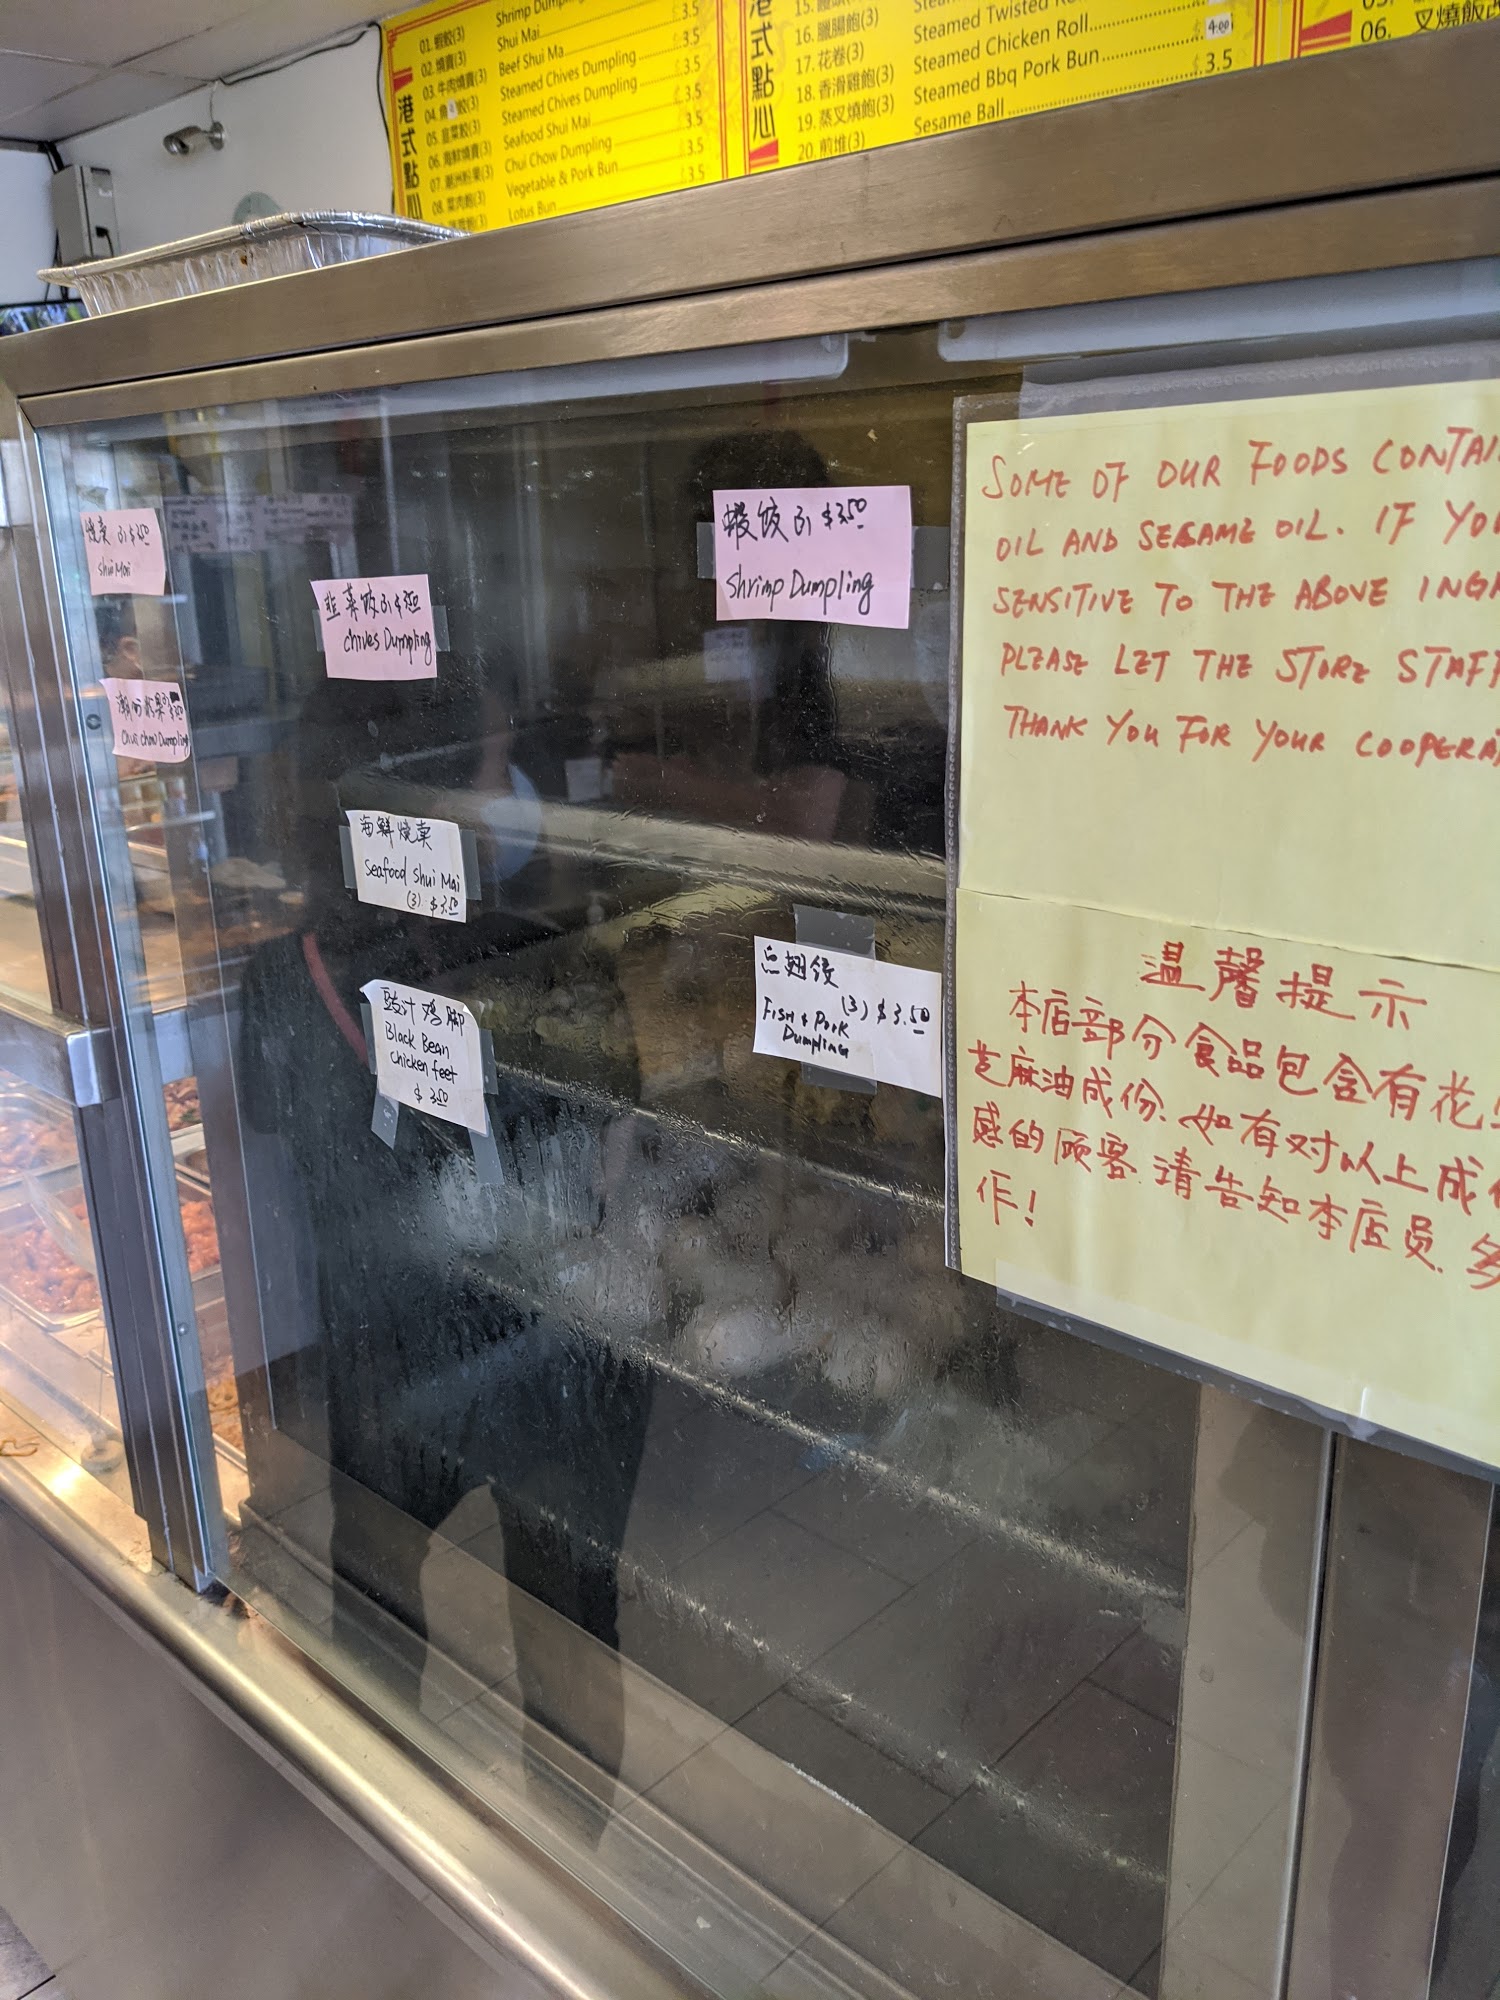 港式點心
01. 蝦餃(3)
02. 燒賣(3)
03. 牛肉燒賣(3)
05. 韭菜餃(3)
06. 海鮮燒賣(3)
07. 潮州粉果(3)
08. 菜肉飽(3)
Shrimp Dumpling
3.5
Shui Mai
3.5
Beef Shui Ma
3.5
Steamed Chives Dumpling
3.5
Steamed Chives Dumpling
3.5
Seafood Shui Mai
3.5
Chui Chow Dumpling
3.5
Vegetable & Pork Bun
3.5
Lotus Bun
港式點心
16. 臘腸飽(3)
17. 花卷(3)
18. 香滑雞飽(3)
19. 蒸叉燒飽(3)
20. 煎堆(3)
Steamed Twisted
Steamed Chicken Roll
4.00
Steamed Bbq Pork Bun
3.5
Sesame Ball
06. 叉燒飯
燒卖
Shui Mai
韭菜饺
Chives Dumpling
虾饺 $3.50
Shrimp Dumpling
潮州粉果
Chui Chow Dumpling
海鮮燒卖
Seafood Shui Mai
(3) $3.50
豉汁鸡脚
Black Bean
Chicken feet
$3.50
(3) $3.50
FISH & PORK
DUMPLING
SOME OF OUR FOODS CONTAI
OIL AND SESAME OIL. IF YO
SENSITIVE TO THE ABOVE INGR
PLEASE LET THE STORE STAFF
THANK YOU FOR YOUR COOPERA
温馨提示
本店部分食品包含有花
芝麻油成份. 如有对以上成
感的顾客. 请告知本店员. 多
作!